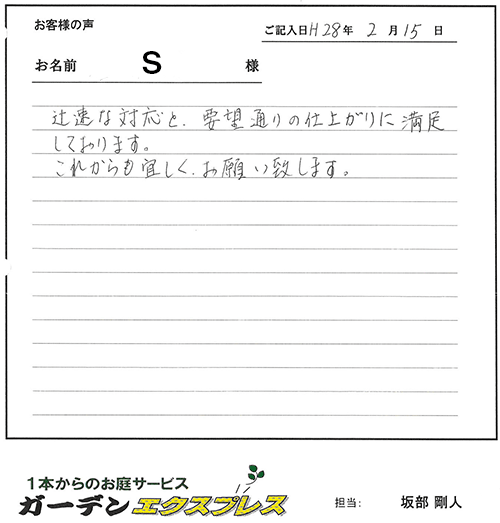 お客様の声
ご記入日 H28年 2月 15日
お名前 S 様
迅速な対応と、要望通りの仕上がりに満足
しております。
これからも宜しく、お願い致します。
1本からのお庭サービス
ガーデンエクスプレス
担当: 坂部 剛人